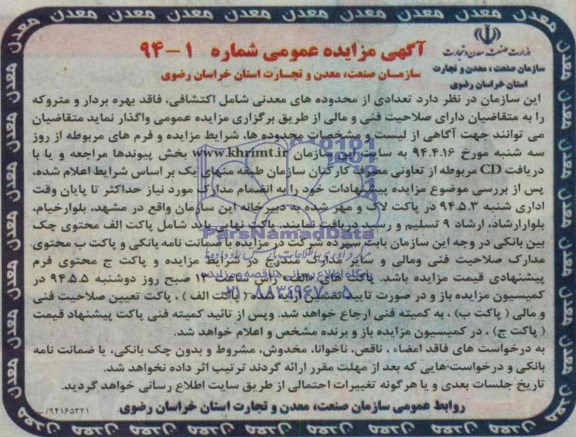 معدن معدن معدن معدن معدن معدن معدن معدن معدن
وزارت صنعت، معدن و تجارت
سازمان صنعت، معدن و تجارت
استان خراسان رضوی
آگهی مزایده عمومی شماره ۱-۹۴
سازمان صنعت، معدن و تجارت استان خراسان رضوی
این سازمان در نظر دارد تعدادی از محدوده های معدنی شامل اکتشافی، فاقد بهره بردار و متروکه
را به متقاضیان دارای صلاحیت فنی و مالی از طریق برگزاری مزایده عمومی واگذار نماید متقاضیان
می توانند جهت آگاهی از لیست و مشخصات محدوده ها، شرایط مزایده و فرم های مربوطه از روز
سه شنبه مورخ ۹۴.۴.۱۶ به سایت این سازمان www.khrimt.ir بخش پیوندها مراجعه و یا با
دریافت CD مربوطه از تعاونی مصرف کارکنان سازمان طبقه منهای یک بر اساس شرایط اعلام شده،
پس از بررسی موضوع مزایده پیشنهادات خود را به انضمام مدارک مورد نیاز حداکثر تا پایان وقت
اداری شنبه ۹۴.۵.۳ در پاکت لاک و مهر شده به دبیرخانه این سازمان واقع در مشهد، بلوارخیام،
بلوارارشاد، ارشاد ۹ تسلیم و رسید دریافت نمایند. پاکت نهایی باید شامل پاکت الف محتوی چک
بین بانکی در وجه این سازمان بابت سپرده شرکت در مزایده یا ضمانت نامه بانکی و پاکت ب محتوی
مدارک صلاحیت فنی ومالی و سایر مدارک مندرج در شرایط مزایده و پاکت ج محتوی فرم
پیشنهادی قیمت مزایده باشد. پاکت های راس ساعت ۱۲ صبح روز دوشنبه ۹۴.۵.۵ در
کمیسیون مزایده باز و در صورت تایید ( پاکت الف ) ، پاکت تعیین صلاحیت فنی
و مالی ( پاکت ب) ، به کمیته فنی ارجاع خواهد شد. وپس از تائید کمیته فنی پاکت پیشنهاد قیمت
( پاکت ج) ، در کمیسیون مزایده باز و برنده مشخص و اعلام خواهد شد.
به درخواست های فاقد امضاء ، ناقص، ناخوانا، مخدوش، مشروط و بدون چک بانکی، یا ضمانت نامه
بانکی و درخواست‌هایی که بعد از مهلت مقرر ارائه گردند ترتیب اثر داده نخواهد شد.
تاریخ جلسات بعدی و یا هرگونه تغییرات احتمالی از طریق سایت اطلاع رسانی خواهد گردید.
روابط عمومی سازمان صنعت، معدن و تجارت استان خراسان رضوی
۹۴۱۶۵۳۲۱/م
ParsNamadData
پایگاه اطلاع رسانی مناقصه و مزایده
۰۲۱-۸۸۳۴۹۶۷۰-۵